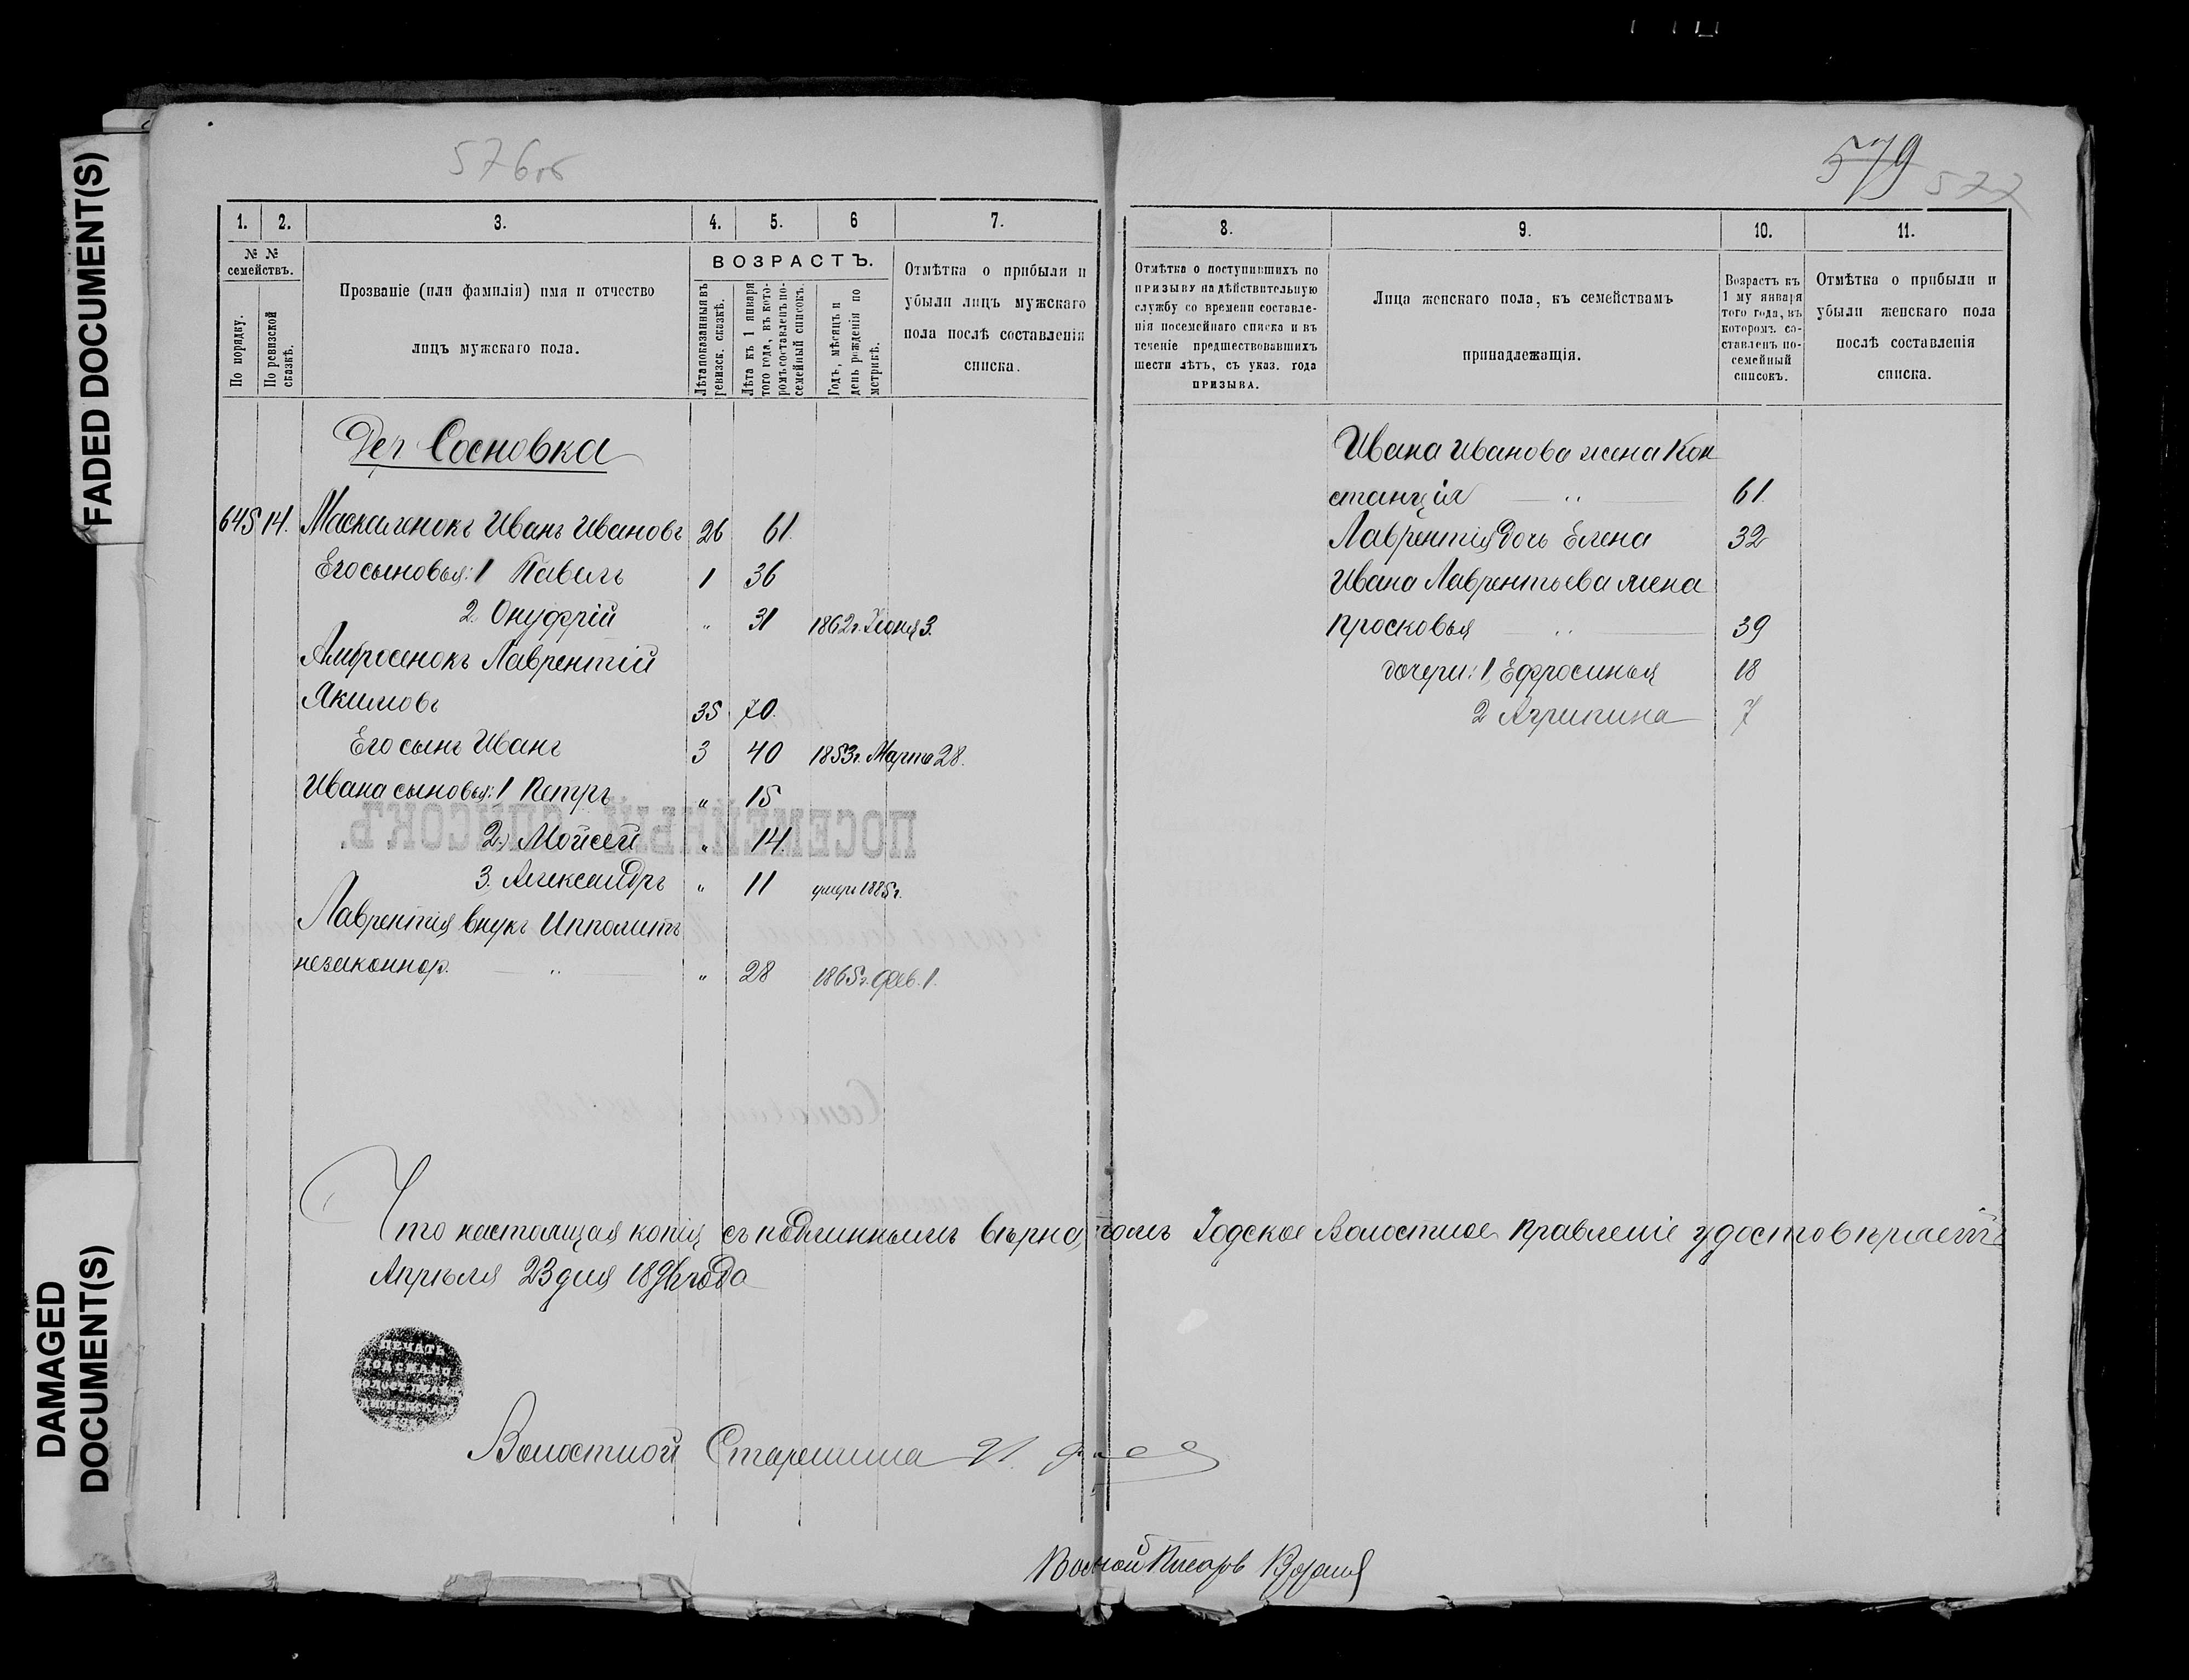 FADED DOCUMENT(S)
DAMAGED
DOCUMENT(S)
576об
579 577
1. 2. 3. 4. 5. 6 7.
№ №
семействъ.
По порядку.
По ревизской
сказкѣ.
Прозваніе (или фамилія) имя и отчество
лицъ мужскаго пола.
ВОЗРАСТЪ.
Лѣта показанныя въ
ревизск. сказкѣ.
Лѣта къ 1 января
того года, въ кото-
ромъ составленъ по-
семейный списокъ.
Годъ, мѣсяцъ и
день рожденія по
метрикѣ.
Отмѣтка о прибыли и
убыли лицъ мужскаго
пола послѣ составленія
списка.
Дер Сосновка
645 14. Маскаленокъ Иванъ Ивановъ 26 61.
Его сыновья: 1 Павелъ 1 36
2. Онуфрій " 31 1862г. Іюня 3.
Амбросенокъ Лаврентій
Якимовъ 35 70.
Его сынъ Иванъ 3 40 1853г. Марта 28.
Ивана сыновья: 1 Петръ " 15
2.) Мойсей " 14.
3. Александръ " 11 умеръ 1885г.
Лаврентія внукъ Ипполитъ
незаконнор. " " 28 1865г. Фев. 1.
ПОСЕМЕЙНЫЙ СПИСОКЪ.
8. 9. 10. 11.
Отмѣтка о поступившихъ по
призыву на дѣйствительную
службу со времени составле-
нія посемейнаго списка и въ
теченіе предшествовавшихъ
шести лѣтъ, съ указ. года
призыва.
Лица женскаго пола, къ семействамъ
принадлежащія.
Возрастъ къ
1 му января
того года, въ
которомъ со-
ставленъ по-
семейный
списокъ.
Отмѣтка о прибыли и
убыли женскаго пола
послѣ составленія
списка.
Ивана Иванова жена Кон
станція " 61.
Лаврентія дочь Елена 32
Ивана Лаврентьева жена
Просковья " 39
дочери: 1, Ефросинья 18
2 Агрипина 7
Что настоящая копія съ подлиннымъ вѣрна, томъ Іодское Волостное Правленіе удостовѣряетъ
Апрѣля 23 дня 1896 года
ПЕЧАТЬ
ІОДСКАГО
ВОЛОСТ. ПРАВЛ.
ДИСНЕНСКАГО
УѢЗ.
Волостной Старшина
Волостной Писарь